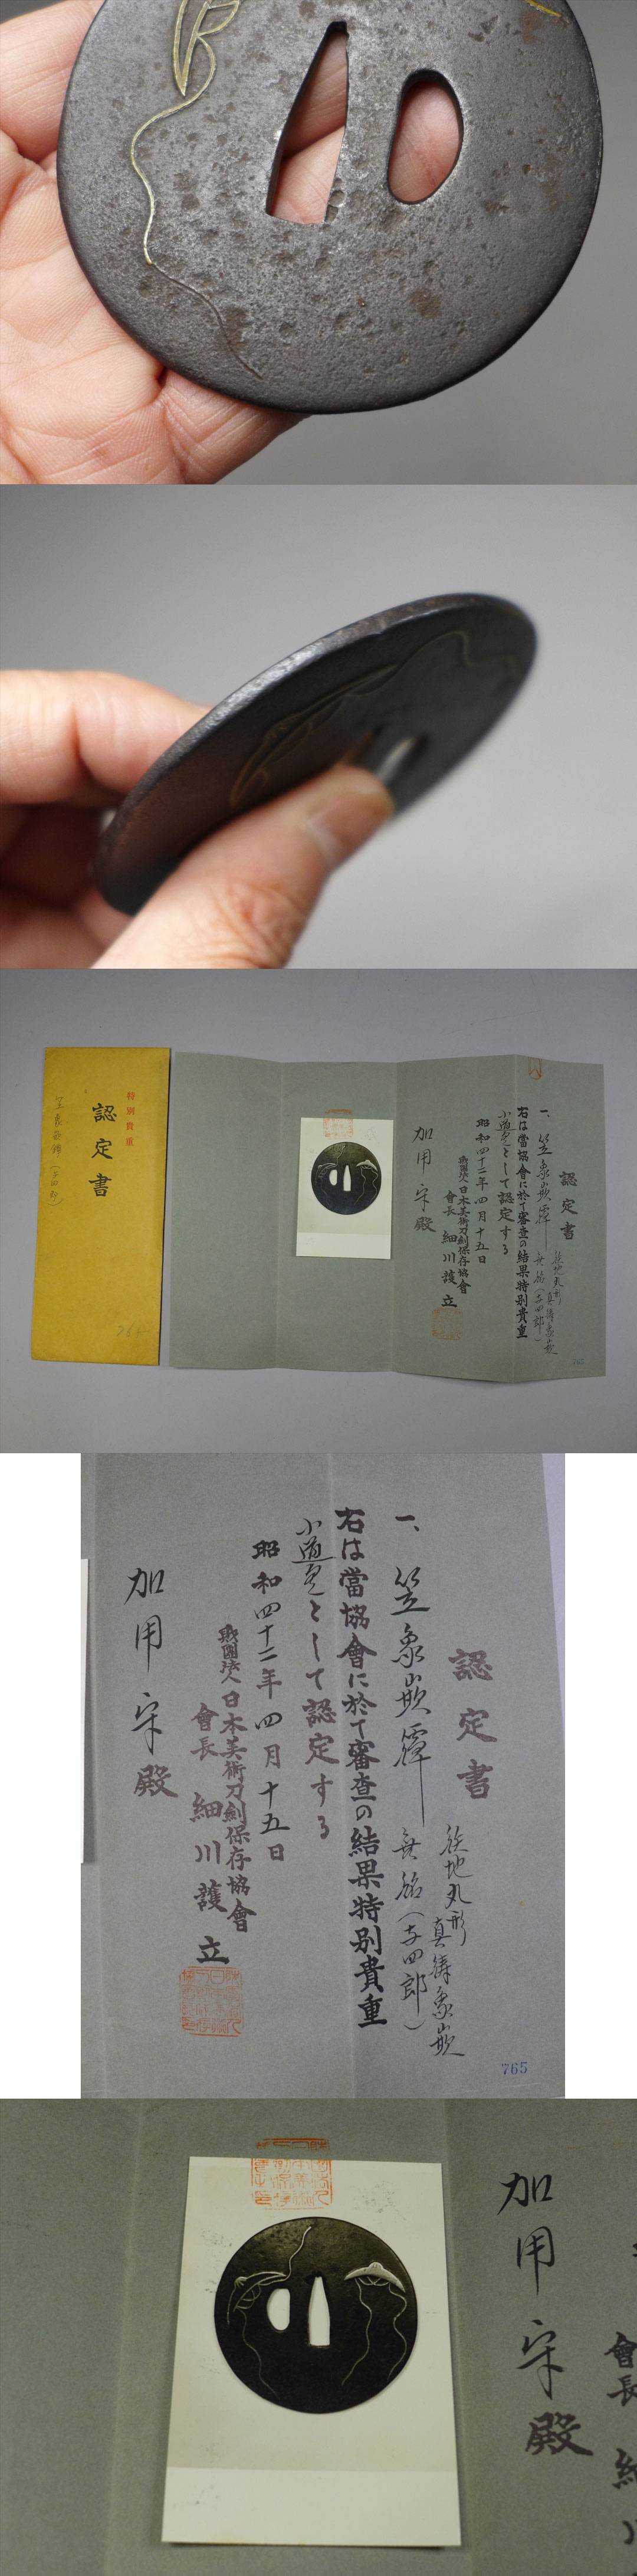 特別貴重
認定書
笠象嵌鐔(与四郎)
認定書
一、笠象嵌鐔
鉄地丸形
真鍮象嵌
無銘(与四郎)
右は當協會に於て審査の結果特別貴重
小道具として認定する
昭和四十二年四月十五日
財團法人日本美術刀劍保存協會
會長 細川護立
加用宋殿
765
認定書
鉄地丸形
真鍮象嵌
一、笠象嵌鐔
無銘(与四郎)
右は當協會に於て審査の結果特別貴重
小道具として認定する
昭和四十二年四月十五日
財團法人日本美術刀劍保存協會
會長 細川護立
加用宋殿
765
會長 細川
加用宋殿